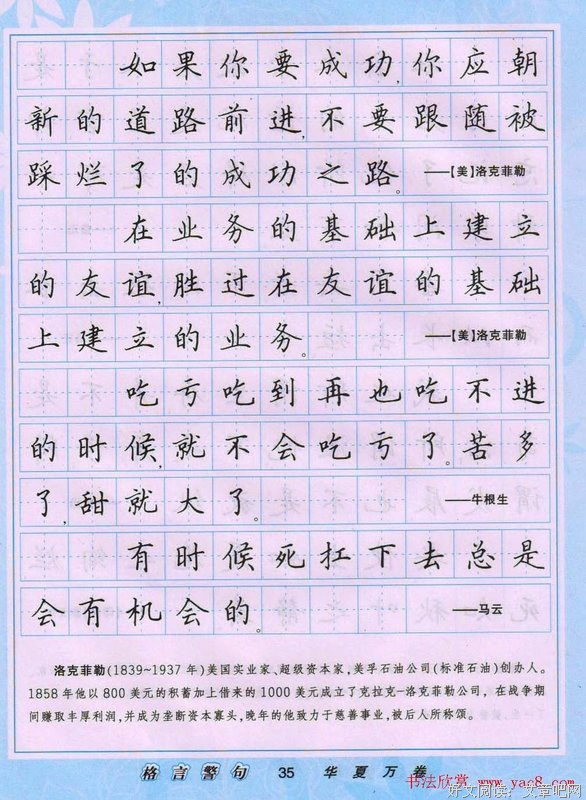 如果你要成功,你应朝
新的道路前进,不要跟随被
踩烂了的成功之路。——【美】洛克菲勒
在业务的基础上建立
的友谊,胜过在友谊的基础
上建立的业务。——【美】洛克菲勒
吃亏吃到再也吃不进
的时候,就不会吃亏了。苦多
了,甜就大了。——牛根生
有时候死扛下去总是
会有机会的。——马云
洛克菲勒(1839~1937年)美国实业家、超级资本家,美孚石油公司(标准石油)创办人。
1858年他以800美元的积蓄加上借来的1000美元成立了克拉克-洛克菲勒公司,在战争期
间赚取丰厚利润,并成为垄断资本寡头,晚年的他致力于慈善事业,被后人所称颂。
格言警句 35 华夏万卷
书法欣赏 www.yac8.com
好文阅读:文章吧网